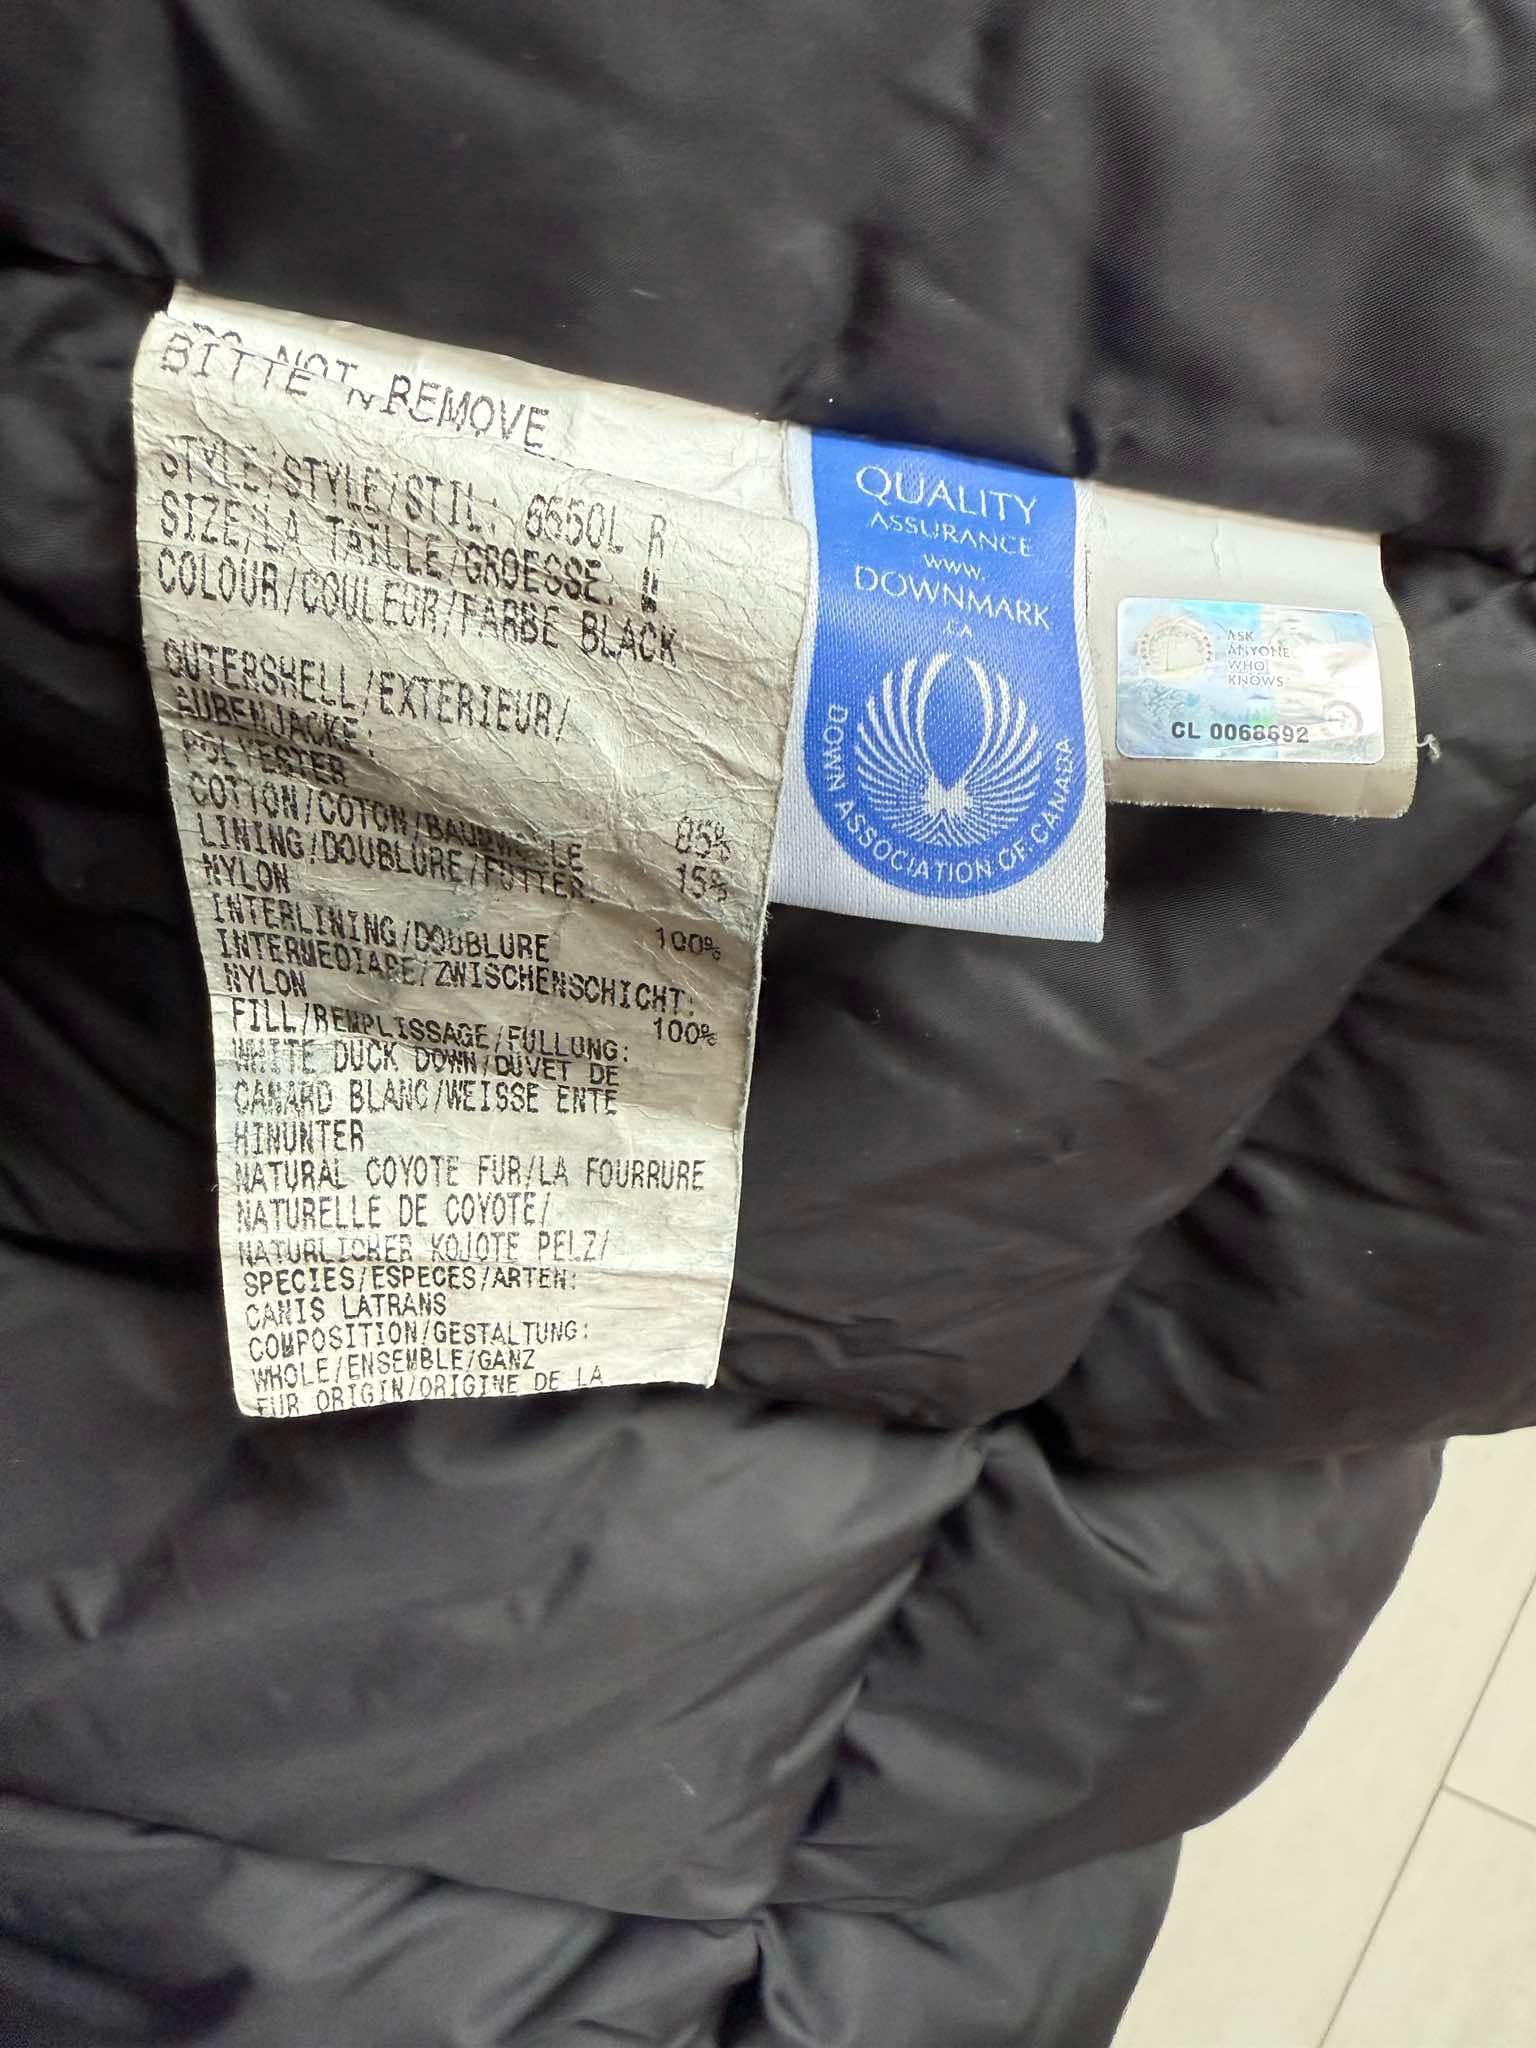 DO NOT REMOVE
BITTE N
STYLE/STYLE/STIL: 6550L R
SIZE/LA TAILLE/GROESSE:
COLOUR/COULEUR/FARBE BLACK
OUTERSHELL/EXTERIEUR/
AUBENJACKE:
POLYESTER 85%
COTTON/COTON/BAUMWOLLE 15%
LINING/DOUBLURE/FUTTER:
NYLON 100%
INTERLINING/DOUBLURE
INTERMEDIARE/ZWISCHENSCHICHT:
NYLON 100%
FILL/REMPLISSAGE/FULLUNG:
WHITE DUCK DOWN/DUVET DE
CANARD BLANC/WEISSE ENTE
HINUNTER
NATURAL COYOTE FUR/LA FOURRURE
NATURELLE DE COYOTE/
NATURLICHER KOJOTE PELZ/
SPECIES/ESPECES/ARTEN:
CANIS LATRANS
COMPOSITION/GESTALTUNG:
WHOLE/ENSEMBLE/GANZ
FUR ORIGIN/ORIGINE DE LA
QUALITY
ASSURANCE
www.
DOWNMARK
.CA
DOWN ASSOCIATION OF CANADA
ASK
ANYONE
WHO
KNOWS
CL 0068692